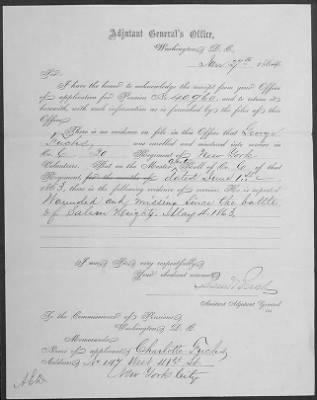 Adjutant General's Office,
Washington, D. C.
Jan 27th 1864
Sir:
I have the honor to acknowledge the receipt from your Office
of application for Pension No. 40960, and to return it
herewith, with such information as is furnished by the files of this
Office.
There is no evidence on file in this Office that George
was enrolled and mustered into service in
Co. G 20 Regiment of New York
Volunteers. But on the Muster Roll of Co. G of that
Regiment, for the months of dated June 1st
1863, there is the following evidence of service. He is reported
Wounded and missing since the battle
of Salem Heights May 4. 1863.
I am, Sir, very respectfully,
Your obedient servant,
Assistant Adjutant General
To the Commissioner of Pensions
Washington D. C.
Memoranda:
Name of applicant, Charlotte
Address, No 147 West 41st St
New York City